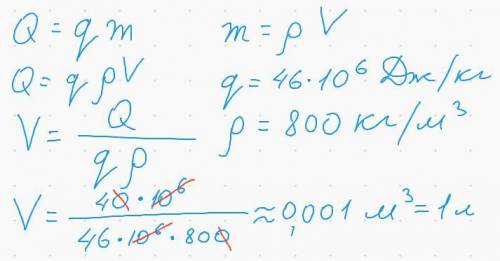 Q = qm   m = ρV
Q = qρV   q = 46·10⁶ Дж/кг
V = Q / qρ   ρ = 800 кг/м³
V = 40·10⁶ / 46·10⁶·800 ≈ 0,001 м³ = 1л